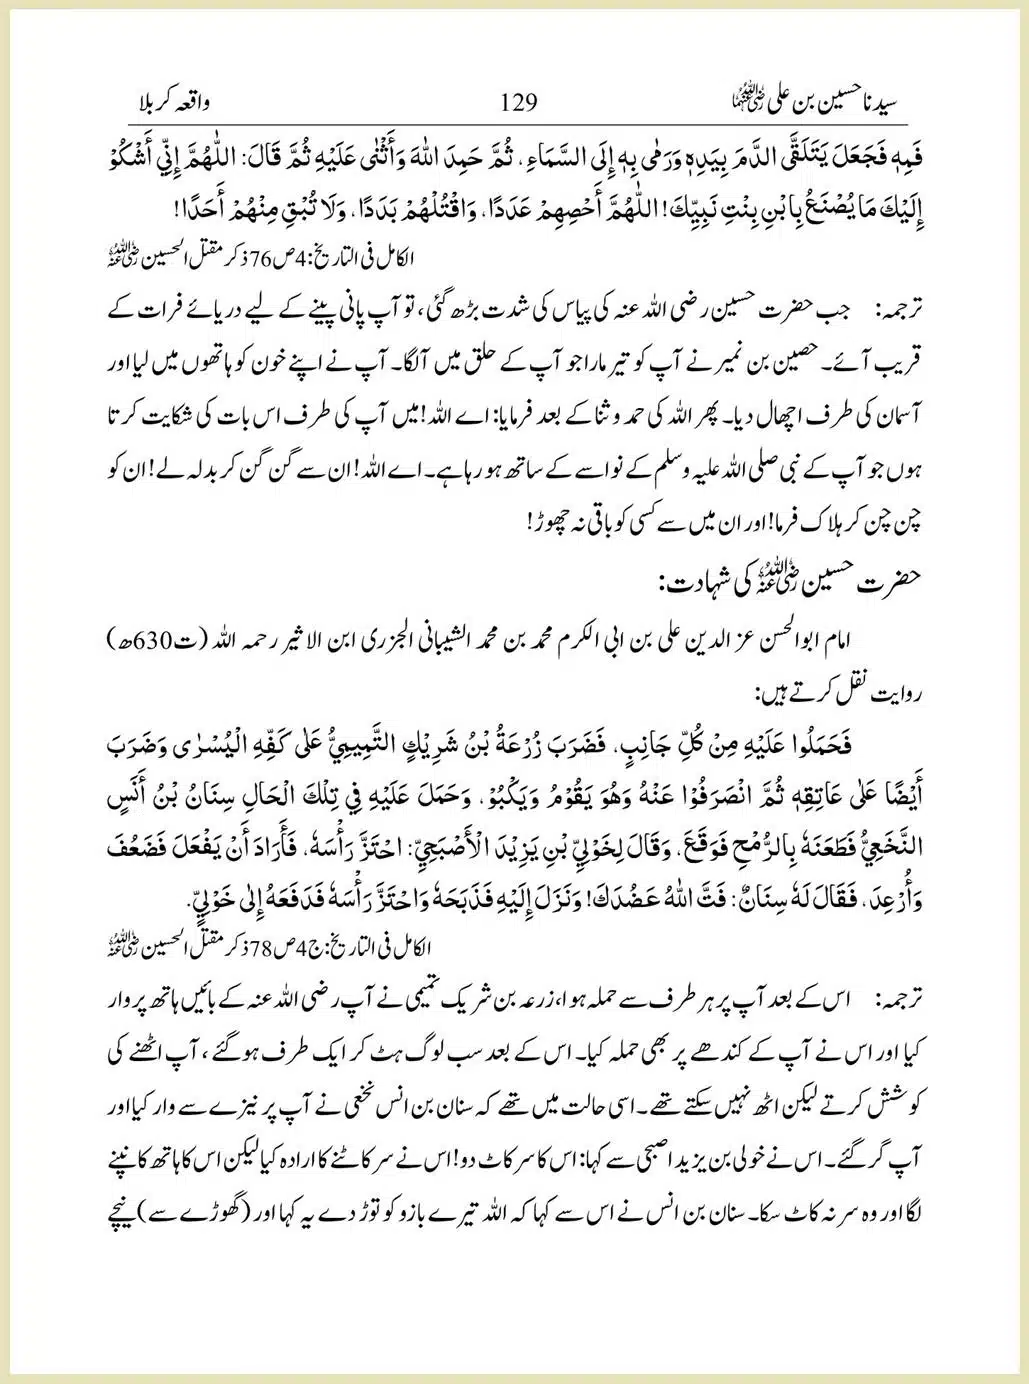 سیدنا حسین بن علی رضی اللہ عنہما 129 واقعہ کربلا
فَمِهٖ فَجَعَلَ يَتَلَقَّى الدَّمَ بِيَدِهٖ وَرَمٰى بِهٖ إِلَى السَّمَاءِ، ثُمَّ حَمِدَ اللّٰهَ وَأَثْنٰى عَلَيْهِ ثُمَّ قَالَ: اللّٰهُمَّ إِنِّي أَشْكُوْ
إِلَيْكَ مَا يُصْنَعُ بِابْنِ بِنْتِ نَبِيِّكَ! اللّٰهُمَّ أَحْصِهِمْ عَدَدًا، وَاقْتُلْهُمْ بَدَدًا، وَلَا تُبْقِ مِنْهُمْ أَحَدًا!
الکامل فی التاریخ: 4ص76 ذکر مقتل الحسین رضی اللہ عنہ
ترجمہ: جب حضرت حسین رضی اللہ عنہ کی پیاس کی شدت بڑھ گئی، تو آپ پانی پینے کے لیے دریائے فرات کے
قریب آئے۔ حصین بن نمیر نے آپ کو تیر مارا جو آپ کے حلق میں آلگا۔ آپ نے اپنے خون کو ہاتھوں میں لیا اور
آسمان کی طرف اچھال دیا۔ پھر اللہ کی حمد و ثنا کے بعد فرمایا: اے اللہ! میں آپ کی طرف اس بات کی شکایت کرتا
ہوں جو آپ کے نبی صلی اللہ علیہ وسلم کے نواسے کے ساتھ ہو رہا ہے۔ اے اللہ! ان سے گن گن کر بدلہ لے! ان کو
چن چن کر ہلاک فرما! اور ان میں سے کسی کو باقی نہ چھوڑ!
حضرت حسین رضی اللہ عنہ کی شہادت:
امام ابوالحسن عز الدین علی بن ابی الکرم محمد بن محمد الشیبانی الجزری ابن الاثیر رحمہ اللہ (ت630ھ)
روایت نقل کرتے ہیں:
فَحَمَلُوا عَلَيْهِ مِنْ كُلِّ جَانِبٍ، فَضَرَبَ زُرْعَةُ بْنُ شَرِيْكٍ التَّمِيْمِيُّ عَلٰى كَفِّهِ الْيُسْرٰى وَضَرَبَ
أَيْضًا عَلٰى عَاتِقِهٖ ثُمَّ انْصَرَفُوْا عَنْهُ وَهُوَ يَقُوْمُ وَيَكْبُوْ، وَحَمَلَ عَلَيْهِ فِي تِلْكَ الْحَالِ سِنَانُ بْنُ أَنَسٍ
النَّخَعِيُّ فَطَعَنَهٗ بِالرُّمْحِ فَوَقَعَ، وَقَالَ لِخَوْلِيِّ بْنِ يَزِيْدَ الْأَصْبَحِيِّ: احْتَزَّ رَأْسَهٗ، فَأَرَادَ أَنْ يَفْعَلَ فَضَعُفَ
وَأُرْعِدَ، فَقَالَ لَهٗ سِنَانٌ: فَتَّ اللّٰهُ عَضُدَكَ! وَنَزَلَ إِلَيْهِ فَذَبَحَهٗ وَاحْتَزَّ رَأْسَهٗ فَدَفَعَهٗ إِلٰى خَوْلِيٍّ.
الکامل فی التاریخ: ج4ص78 ذکر مقتل الحسین رضی اللہ عنہ
ترجمہ: اس کے بعد آپ پر ہر طرف سے حملہ ہوا، زرعہ بن شریک تمیمی نے آپ رضی اللہ عنہ کے بائیں ہاتھ پر وار
کیا اور اس نے آپ کے کندھے پر بھی حملہ کیا۔ اس کے بعد سب لوگ ہٹ کر ایک طرف ہو گئے، آپ اٹھنے کی
کوشش کرتے لیکن اٹھ نہیں سکتے تھے۔ اسی حالت میں تھے کہ سنان بن انس نخعی نے آپ پر نیزے سے وار کیا اور
آپ گر گئے۔ اس نے خولی بن یزید اصبحی سے کہا: اس کا سر کاٹ دو! اس نے سر کاٹنے کا ارادہ کیا لیکن اس کا ہاتھ کانپنے
لگا اور وہ سر نہ کاٹ سکا۔ سنان بن انس نے اس سے کہا کہ اللہ تیرے بازو کو توڑ دے یہ کہا اور (گھوڑے سے) نیچے